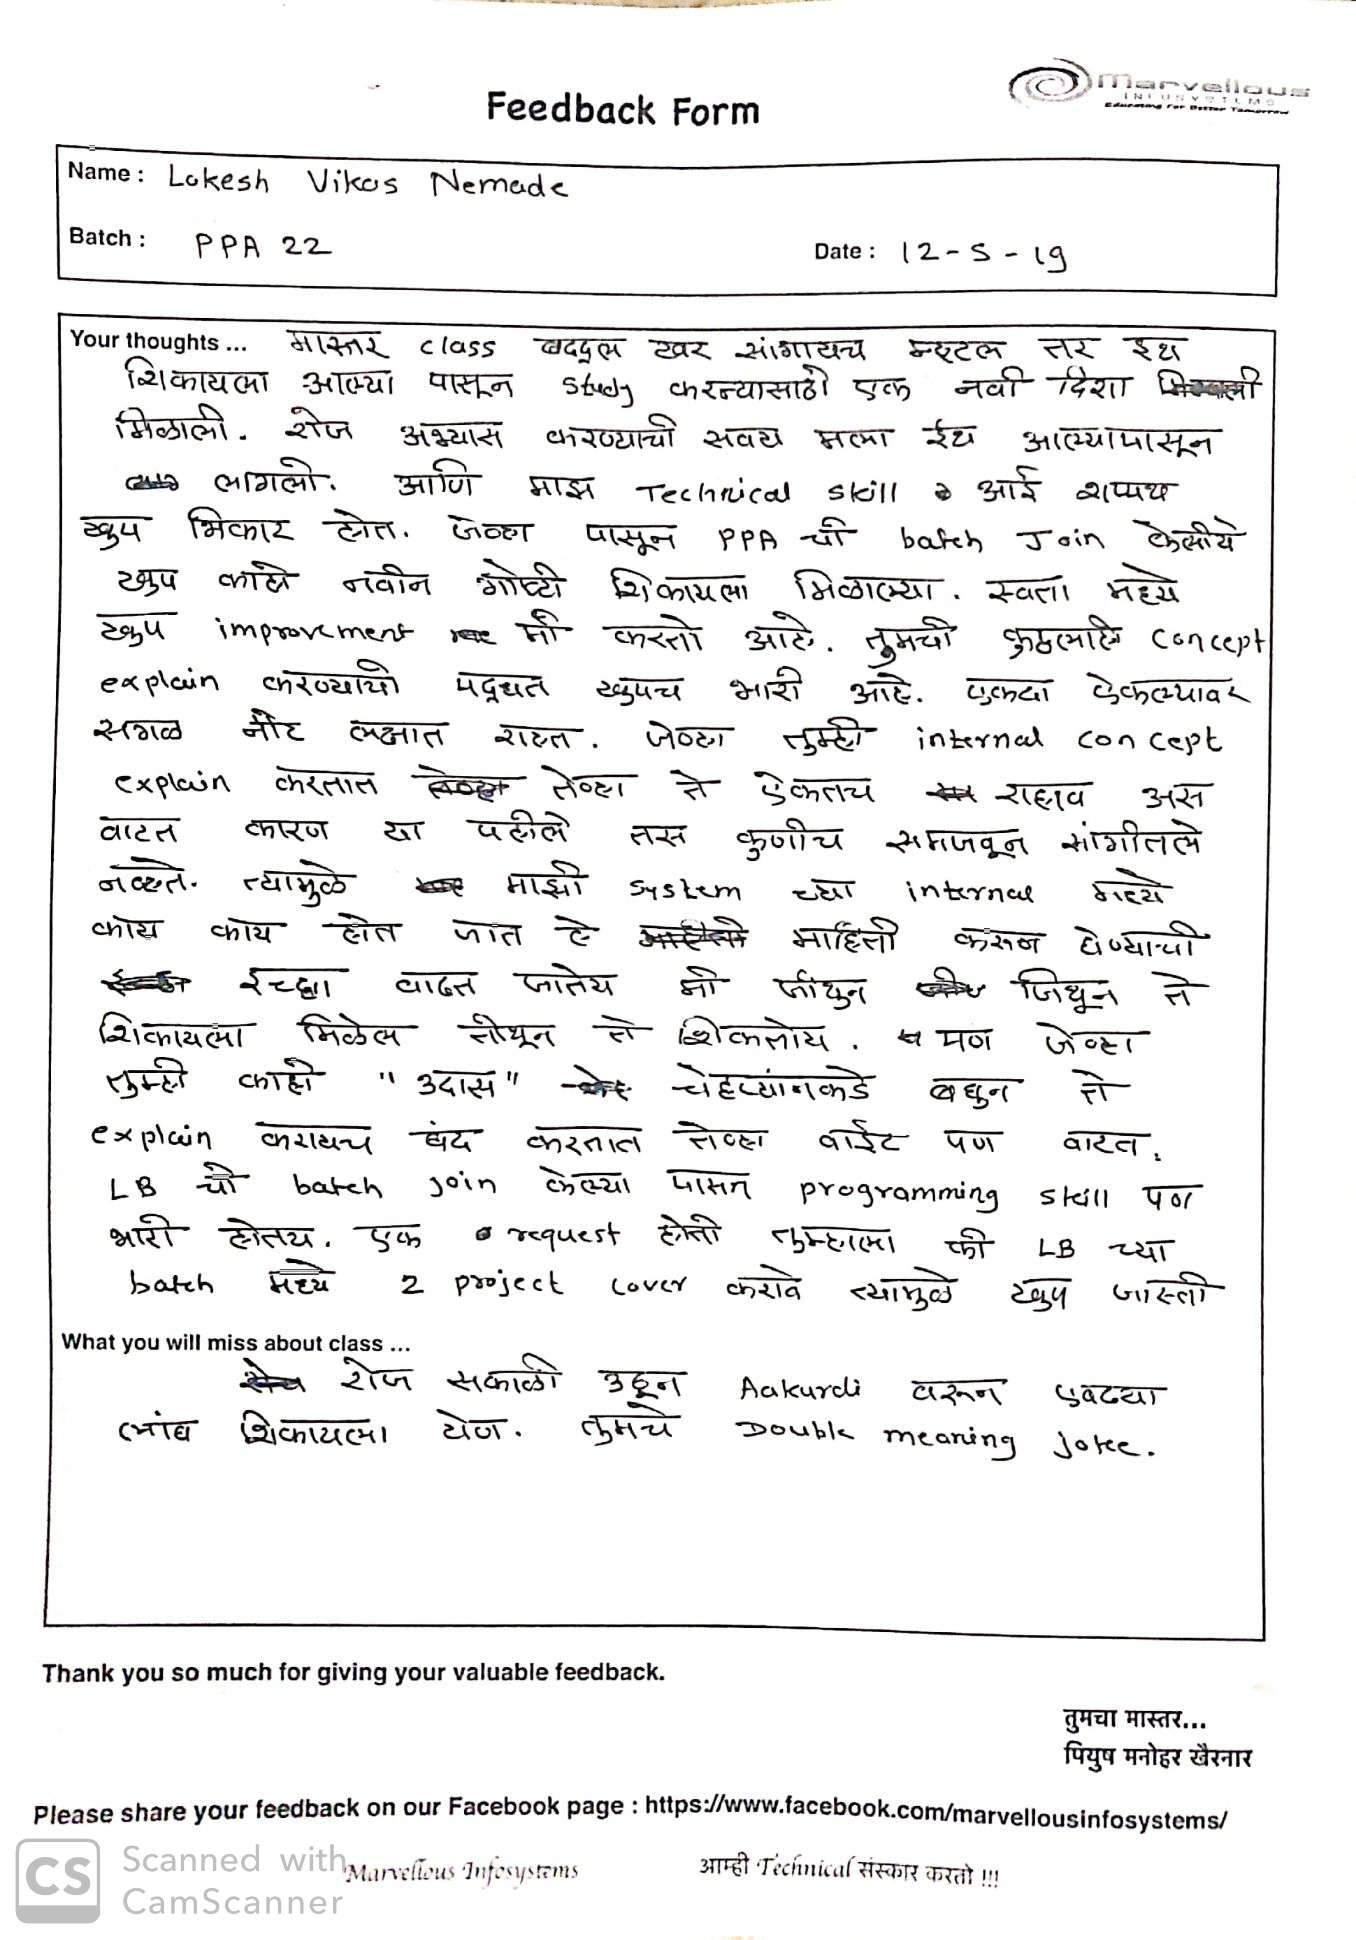 Marvellous
INFOSYSTEMS
Educating For Better Tomorrow
Feedback Form
Name : Lokesh Vikas Nemade
Batch : PPA 22
Date : 12-5-19
Your thoughts ... मास्तर class बद्दल खर सांगायच म्हटल तर इथ
शिकायला आल्या पासून study करन्यासाठी एक नवी दिशा
मिळाली. रोज अभ्यास करण्याची सवय मला ईथ आल्यापासून
लागली. आणि माझ Technical skill आई शप्पथ
खुप भिकार होत. जेव्हा पासून PPA ची batch Join केलीये
खुप काही नवीन गोष्टी शिकायला मिळाल्या. स्वता मध्ये
खुप improvement मी करतो आहे. तुमची कुठलाही concept
explain करण्याची पद्धत खुपच भारी आहे. एकदा ऐकल्यावर
सगळ नीट लक्षात राहत. जेव्हा तुम्ही internal concept
explain करतात तेव्हा ते ऐकतच राहाव अस
वाटत कारण या पहीले तस कुणीच समजवून सांगीतले
नव्हते. त्यामुळे माझी system च्या internal मध्ये
काय काय होत जात हे माहिती करून घेण्याची
ईच्छा वाढत जातेय मी जीथुन जिथून ते
शिकायला मिळेल तीथून ते शिकतोय. पण जेव्हा
तुम्ही काही "उदास" चेहऱ्यांनकडे बघुन ते
explain करायच बंद करतात तेव्हा वाईट पण वाटत.
LB ची batch join केल्या पासन programming skill पण
भारी होतय. एक request होती तुम्हाला की LB च्या
batch मध्ये 2 project cover करावे त्यामुळे खुप जास्ती
What you will miss about class ...
रोज सकाळी उठून Aakurdi वरून एवढ्या
लांब शिकायला येण. तुमचे Double meaning joke.
Thank you so much for giving your valuable feedback.
तुमचा मास्तर...
पियुष मनोहर खैरनार
Please share your feedback on our Facebook page : https://www.facebook.com/marvellousinfosystems/
Marvellous Infosystems
आम्ही Technical संस्कार करतो !!!
CS Scanned with
CamScanner